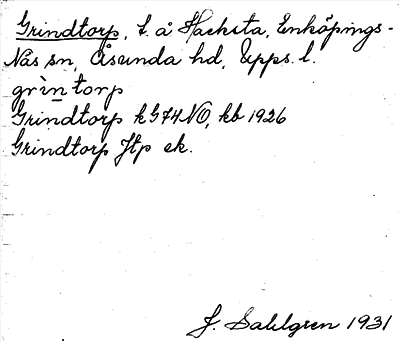 Grindtorp, t. å Hacksta, Enköpings-
Näs sn, Åsunda hd, Upps. l.
grìn torp
Grindtorp k G74 NO, kb 1926
Grindtorp Jtp ek.
J. Sahlgren 1931